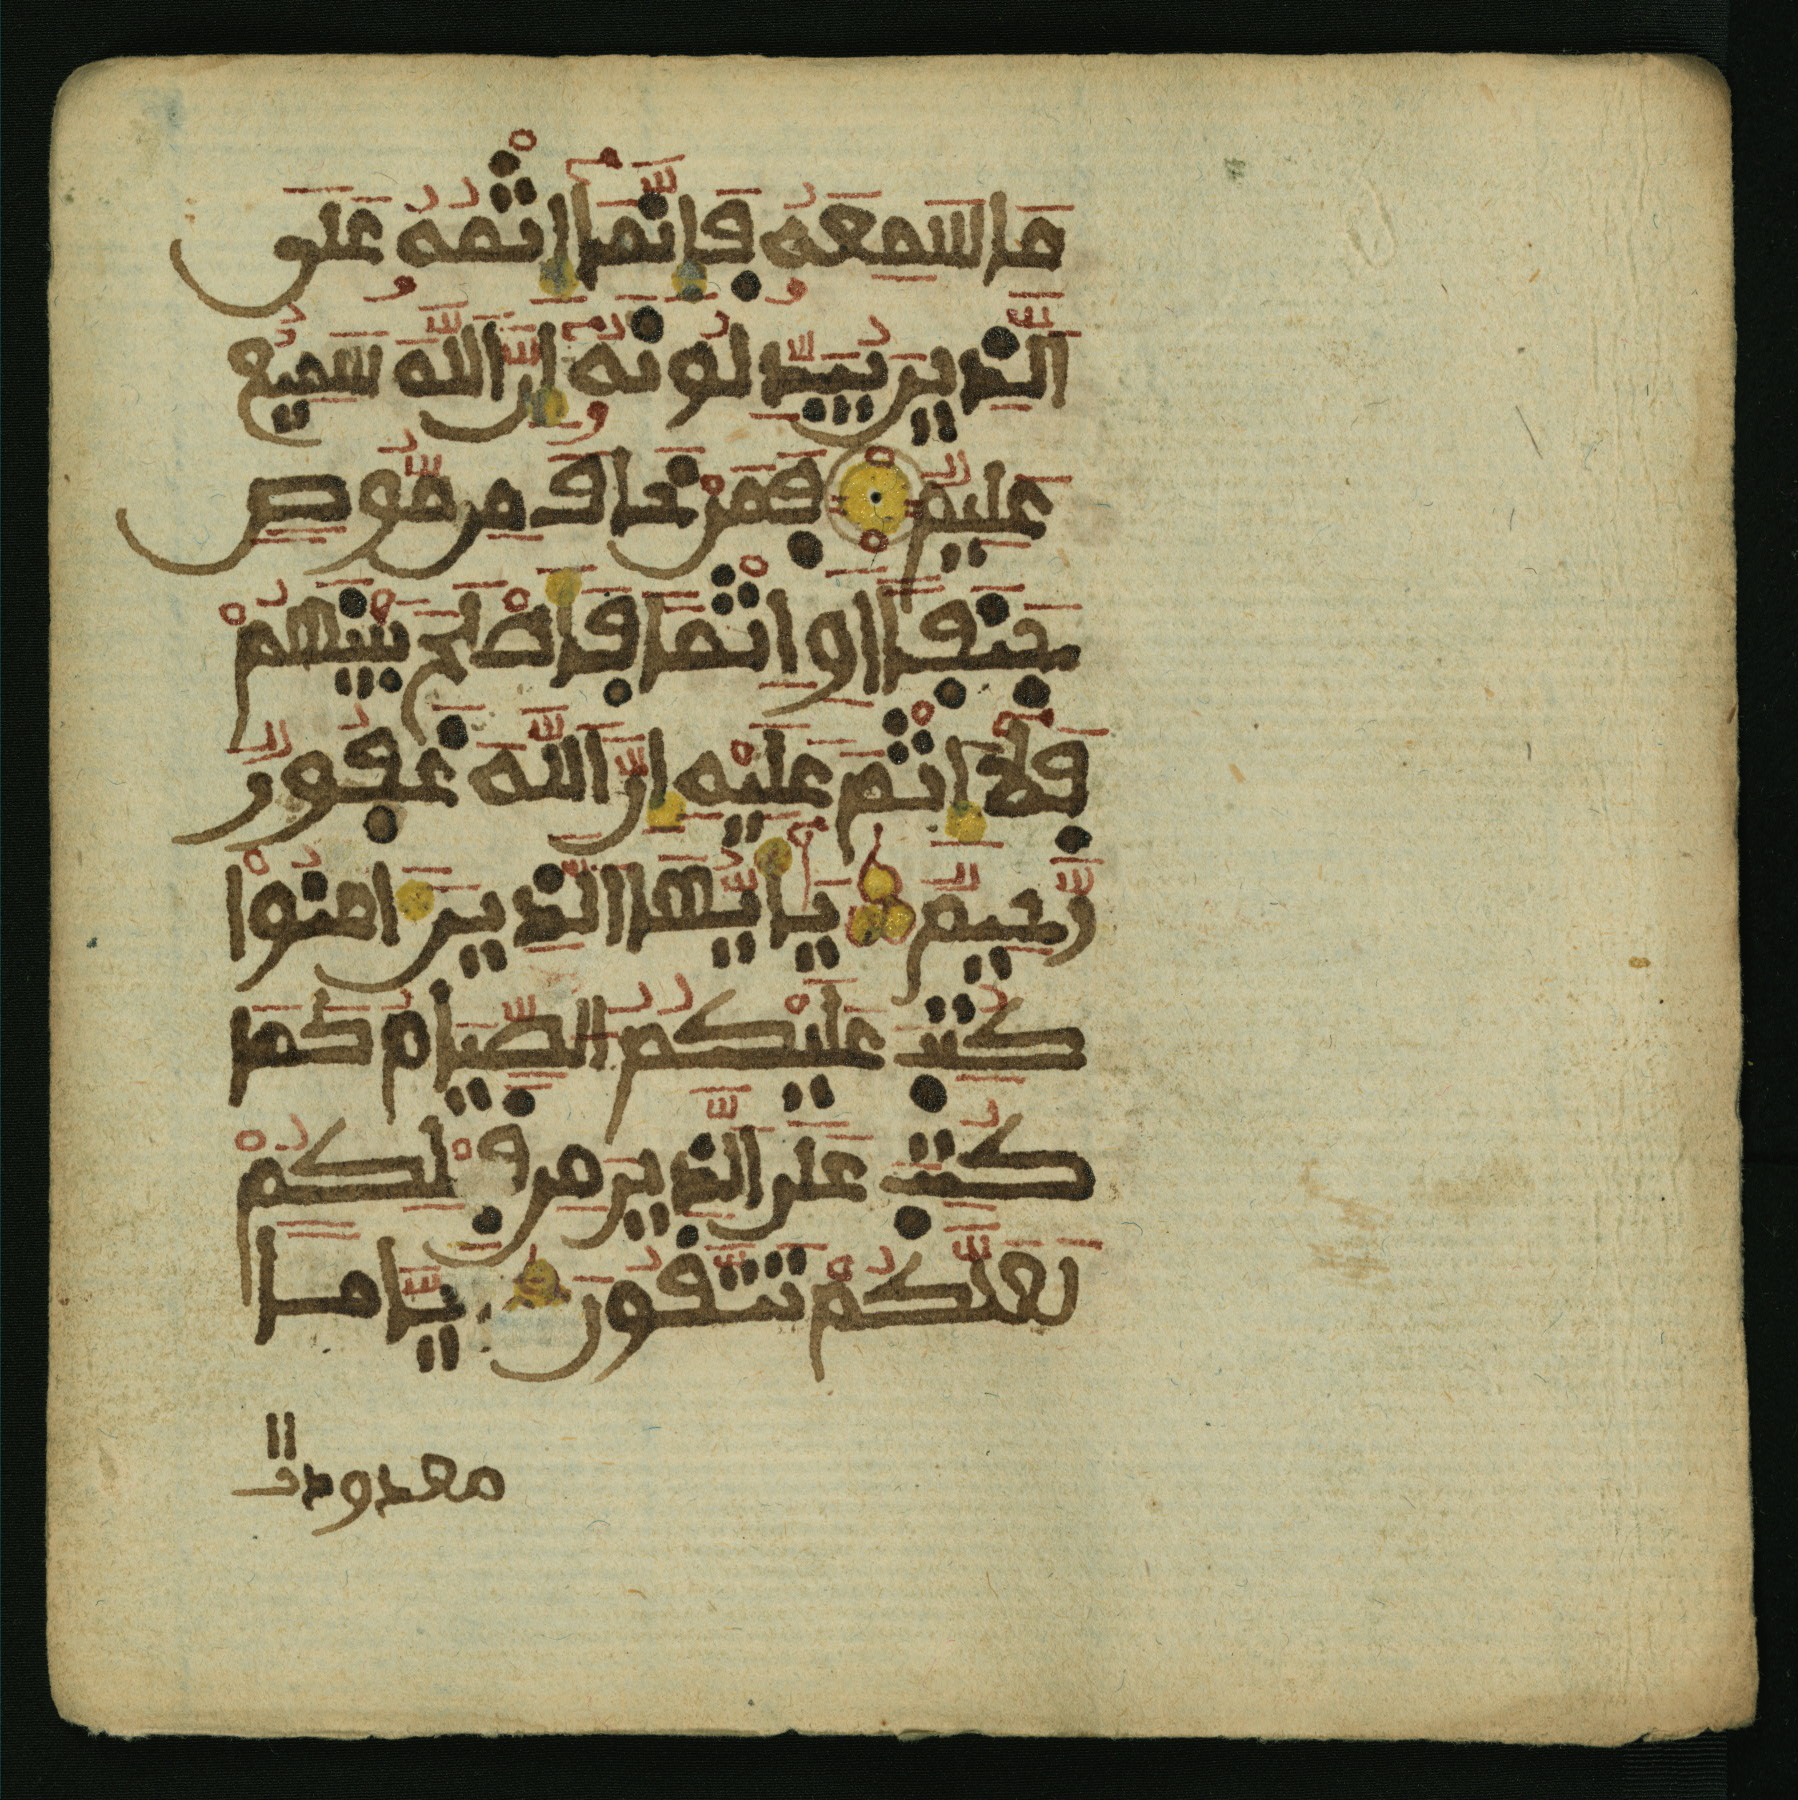 مَا سَمِعَهُۥ فَإِنَّمَآ إِثْمُهُۥ عَلَى
الَّذِينَ يُبَدِّلُونَهُۥٓ إِنَّ اللَّهَ سَمِيعٌ
عَلِيمٌ فَمَنْ خَافَ مِن مُّوصٍ
جَنَفًا اَوِ اثْمًا فَأَصْلَحَ بَيْنَهُمْ
فَلَآ إِثْمَ عَلَيْهِ إِنَّ اللَّهَ غَفُورٌ
رَّحِيمٌ يَٰٓأَيُّهَا الَّذِينَ ءَامَنُوا
كُتِبَ عَلَيْكُمُ الصِّيَامُ كَمَا
كُتِبَ عَلَى الَّذِينَ مِن قَبْلِكُمْ
لَعَلَّكُمْ تَتَّقُونَ أَيَّامًا
معدودت